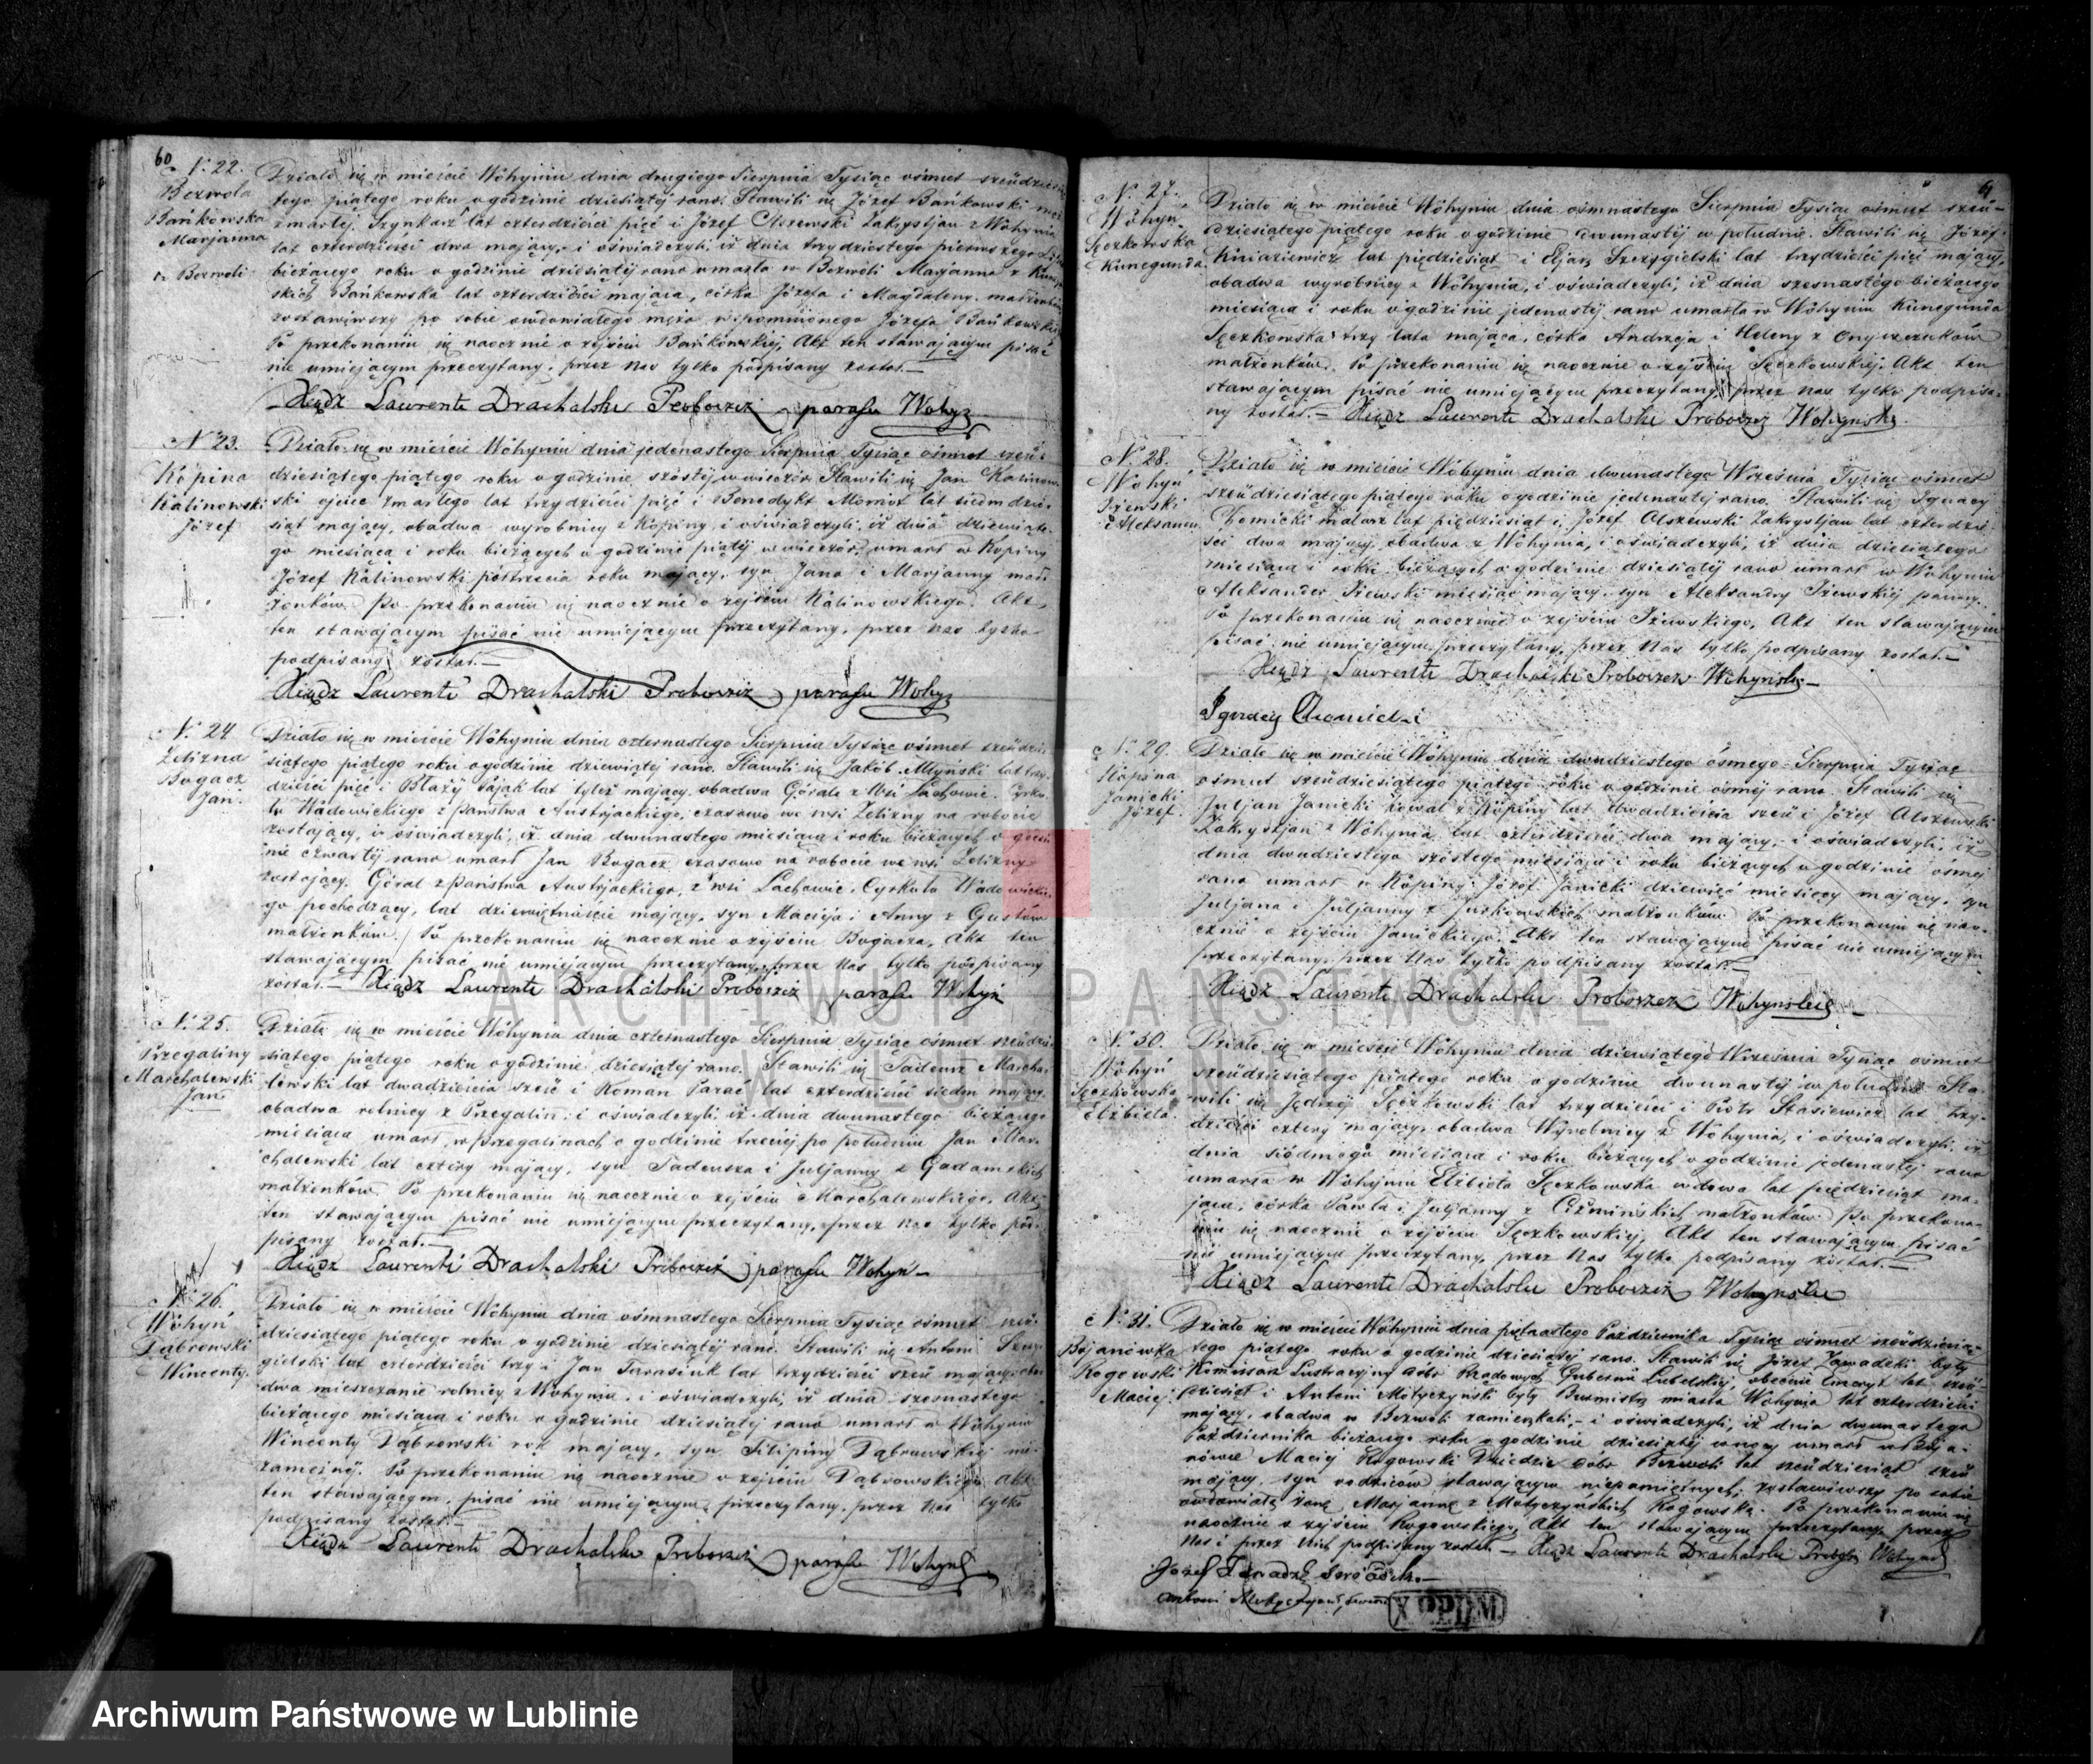 60
N. 22.
Bezwola
Bańkowska
Marjanna
z Bezwoli
Działo się w mieście Wohyniu dnia drugiego Sierpnia Tysiąc ośmset
tego piątego roku o godzinie dziesiątej rano. Stawili się Józef Bańkowski
zmarłej, Szynkarz lat czterdzieści pięć i Józef Olszewski Zakrystjan z Wohynia
lat czterdzieści dwa mający, i oświadczyli, iż dnia trzydziestego pierwszego
bieżącego roku o godzinie dziesiątej rano umarła w Bezwoli Marjanna z
skich Bańkowska lat czterdzieści mająca, córka Józefa i Magdaleny
zostawiwszy po sobie owdowiałego męża wspomnionego Józefa Bańkowskiego
Po przekonaniu się naocznie o zejściu Bańkowskiej, Akt ten stawającym pisać
nie umiejącym przeczytany, przez Nas tylko podpisany został.—
Xiądz Laurenti Drachalski Proboszcz parafii Wohyń
N. 23.
Kopina
Kalinowski
Józef
Działo się w mieście Wohyniu dnia jedenastego Sierpnia Tysiąc ośmset sześć-
dziesiątego piątego roku o godzinie szóstej w wieczór. Stawili się Jan Kalinow-
ski ojciec zmarłego lat trzydzieści pięć i Benedykt Momot lat siedmdzie-
siąt mający, obadwa wyrobnicy z Kopiny, i oświadczyli, iż dnia dziewiąte-
go miesiąca i roku bieżących o godzinie piątej w wieczór, umarł w Kopiny
Józef Kalinowski półtrzecia roku mający, syn Jana i Marjanny mał-
żonków. Po przekonaniu się naocznie o zejściu Kalinowskiego. Akt
ten stawającym pisać nie umiejącym przeczytany, przez Nas tylko
podpisany został.—
Xiądz Laurenti Drachalski Proboszcz parafii Wohyń
N. 24
Żelizna
Bogacz
Jan.
Działo się w mieście Wohyniu dnia czternastego Sierpnia Tysiąc ośmset sześćdzie-
siątego piątego roku o godzinie dziewiątej rano. Stawili się Jakób Młyński lat trzy-
dzieści pięć i Błażej Pająk lat tyleż mający, obadwa Górale z Wsi Lachowic. Cyrku-
łu Wadowickiego z państwa Austrjackiego, czasowo we wsi Żelizny na robocie
zostający, i oświadczyli, iż dnia dwunastego miesiąca i roku bieżących o godzi-
nie czwartej rano umarł Jan Bogacz czasowo na robocie we wsi Żelizny
zostający. Góral z państwa Austrjackiego, z wsi Lachowic, Cyrkułu Wadowickie-
go pochodzący, lat dziewiętnaście mający, syn Macieja i Anny z Gustów
małżonków. Po przekonaniu się naocznie o zejściu Bogacza, Akt ten
stawającym pisać nie umiejącym przeczytany, przez Nas tylko podpisany
został.— Xiądz Laurenti Drachalski Proboszcz parafii Wohyń
N. 25.
Przegaliny
Marchalewski
Jan
Działo się w mieście Wohyniu dnia czternastego Sierpnia Tysiąc ośmset sześćdzie-
siątego piątego roku o godzinie dziesiątej rano. Stawili się Tadeusz Marcha-
lewski lat dwadzieścia sześć i Roman Parać lat czterdzieści siedm mający,
obadwa rolnicy z Przegalin i oświadczyli, iż dnia dwunastego bieżącego
miesiąca umarł w Przegalinach o godzinie trzeciej po południu Jan Mar-
chalewski lat cztery mający, syn Tadeusza i Juljanny z Gadamskich
małżonków. Po przekonaniu się naocznie o zejściu Marchalewskiego. Akt
ten stawającym pisać nie umiejącym przeczytany, przez Nas tylko pod-
pisany został.—
Xiądz Laurenti Drachalski Proboszcz parafii Wohyń—
N. 26.
Wohyń
Dąbrowski
Wincenty.
Działo się w mieście Wohyniu dnia ośmnastego Sierpnia Tysiąc ośmset sześć-
dziesiątego piątego roku o godzinie dziesiątej rano. Stawili się Antoni Szczy-
gielski lat czterdzieści trzy i Jan Tarasiuk lat trzydzieści sześć mający, oba-
dwa mieszczanie rolnicy z Wohynia, i oświadczyli, iż dnia szesnastego
bieżącego miesiąca i roku o godzinie dziesiątej rano umarł w Wohyniu
Wincenty Dąbrowski rok mający, syn Filipiny Dąbrowskiej nie-
zamężnej. Po przekonaniu się naocznie o zejściu Dąbrowskiego Akt
ten stawającym, pisać nie umiejącym, przeczytany, przez Nas tylko
podpisany został.—
Xiądz Laurenti Drachalski Proboszcz parafii Wohyń
61
N. 27.
Wohyń
Sęczkowska
Kunegunda.
Działo się w mieście Wohyniu dnia ośmnastego Sierpnia Tysiąc ośmset sześć-
dziesiątego piątego roku o godzinie dwunastej w południe. Stawili się Józef
Kniaziewicz lat pięćdziesiąt i Eljasz Szczygielski lat trzydzieści pięć mający,
obadwa wyrobnicy z Wohynia, i oświadczyli, iż dnia szesnastego bieżącego
miesiąca i roku o godzinie jedenastej rano umarła w Wohyniu Kunegunda
Sęczkowska trzy lata mająca, córka Andrzeja i Heleny z Onyszczuków
małżonków. Po przekonaniu się naocznie o zejściu Sęczkowskiej. Akt ten
stawającym pisać nie umiejącym przeczytany, przez Nas tylko podpisa-
ny został.— Xiądz Laurenti Drachalski Proboszcz Wohyński
N. 28.
Wohyń
Iżewski
Aleksander
Działo się w mieście Wohyniu dnia dwunastego Września Tysiąc ośmset
sześćdziesiątego piątego roku o godzinie jedenastej rano. Stawili się Ignacy
Chomicki malarz lat pięćdziesiąt i Józef Olszewski Zakrystjan lat czterdzie-
ści dwa mający, obadwa z Wohynia, i oświadczyli, iż dnia dziesiątego
miesiąca i roku bieżących o godzinie dziesiątej rano umarł w Wohyniu
Aleksander Iżewski miesiąc mający, syn Aleksandry Iżewskiej panny.
Po przekonaniu się naocznie o zejściu Iżewskiego, Akt ten stawającym
pisać nie umiejącym, przeczytany, przez Nas tylko podpisany został.—
Xiądz Laurenti Drachalski Proboszcz Wohyński—
Ignacy Chomicki
N. 29.
Kopina
Janicki
Józef.
Działo się w mieście Wohyniu dnia dwudziestego ósmego Sierpnia Tysiąc
ośmset sześćdziesiątego piątego roku o godzinie ósmej rano. Stawili się
Juljan Janicki kowal z Kopiny lat dwadzieścia sześć i Józef Olszewski
Zakrystjan z Wohynia, lat czterdzieści dwa mający, i oświadczyli, iż
dnia dwudziestego szóstego miesiąca i roku bieżących o godzinie ósmej
rano umarł w Kopiny Józef Janicki dziewięć miesięcy mający, syn
Juljana i Juljanny z Jurkowskich małżonków. Po przekonaniu się nao-
cznie o zejściu Janickiego. Akt ten stawającym pisać nie umiejącym
przeczytany, przez Nas tylko podpisany został.—
Xiądz Laurenti Drachalski Proboszcz Wohyński—
N. 30.
Wohyń
Sęczkowska
Elżbieta.
Działo się w mieście Wohyniu dnia dziewiątego Września Tysiąc ośmset
sześćdziesiątego piątego roku o godzinie dwunastej w południe Sta-
wili się Jędrzej Sęczkowski lat trzydzieści i Piotr Stasiewicz lat trzy-
dzieści cztery mający, obadwa Wyrobnicy z Wohynia, i oświadczyli, iż
dnia siódmego miesiąca i roku bieżących o godzinie jedenastej rano
umarła w Wohyniu Elżbieta Sęczkowska wdowa lat pięćdziesiąt ma-
jąca, córka Pawła i Juljanny z Ciźmińskich małżonków. Po przekona-
niu się naocznie o zejściu Sęczkowskiej, Akt ten stawającym, pisać
nie umiejącym przeczytany, przez Nas tylko podpisany został.—
Xiądz Laurenti Drachalski Proboszcz Wohyński
N. 31.
Bojanówka
Rogowski
Maciej
Działo się w mieście Wohyniu dnia piętnastego Października Tysiąc ośmset sześćdziesią-
tego piątego roku o godzinie dziesiątej rano. Stawili się Józef Zawadzki były
Komisarz Lustracyjny dóbr Rządowych Gubernii Lubelskiej, obecnie Emeryt lat sześć-
dziesiąt i Antoni Motyczyński były Burmistrz miasta Wohynia lat czterdzieści
mający, obadwa w Bezwoli zamieszkali,— i oświadczyli, iż dnia dwunastego
Października bieżącego roku o godzinie dziesiątej w nocy umarł w Boja-
nówce Maciej Rogowski Dziedzic dóbr Bezwoli lat sześćdziesiąt sześć
mający, syn rodziców stawającym niepamiętnych, zostawiwszy po sobie
owdowiałą żonę Marjannę z Motyczyńskich Rogowską. Po przekonaniu się
naocznie o zejściu Rogowskiego, Akt ten stawającym przeczytany, przez
Nas i przez Nich podpisany został.— Xiądz Laurenti Drachalski Proboszcz Wohyński
Józef Zawadzki
Antoni Motyczyński
X PPDM
ARCHIWUM PAŃSTWOWE
W LUBLINIE
Archiwum Państwowe w Lublinie